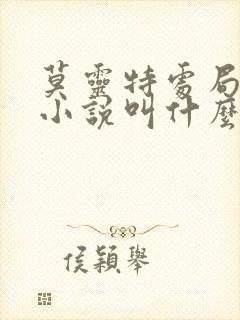 莫靈特處局
小說叫什麼
侯穎舉